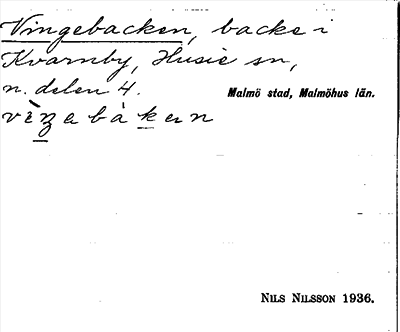 Vingebacken, backe i
Kvarnby, Husie sn,
n. delen 4. Malmö stad, Malmöhus län.
NILS NILSSON 1936.